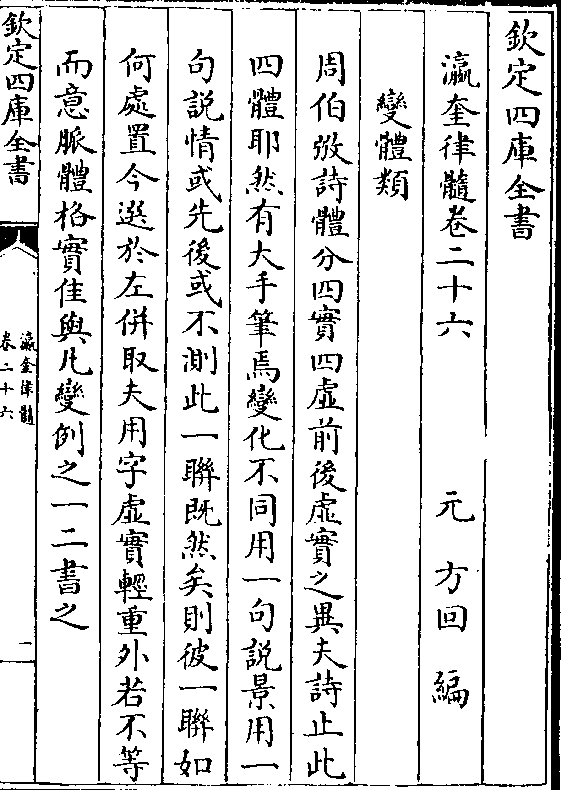 欽定四庫全書
瀛奎律髓卷二十六　元　方回　編
變體類
周伯弜詩體分四實四虛前後虛實之異夫詩止此
四體耶然有大手筆焉變化不同用一句説景用一
句説情或先後或不測此一聯既然矣則彼一聯如
何處置今選於左併取夫用字虛實輕重外若不等
而意脈體格實佳與凡變例之一二書之
欽定四庫全書
瀛奎律髓
卷二十六